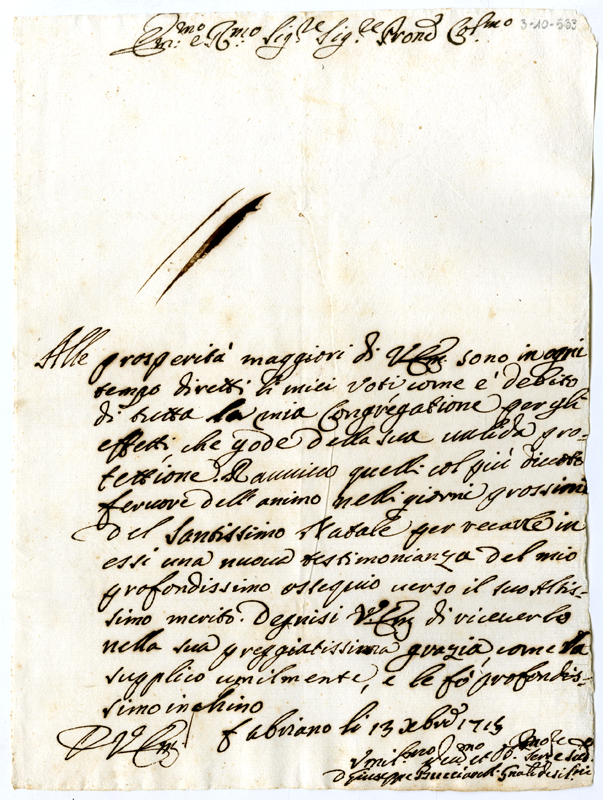 3-10-533
Em:mo e R:mo Sig:re Sig:re Pron Col:mo
Alle prosperità maggiori di V. Em: sono in ogni
tempo diretti li miei voti come è debito
di tutta la mia Congregatione per gli
effetti, che gode della sua valida pro-
tettione. Rauuiuo quelli col più
feruore dell'animo nelli giorni prossimi
del Santissimo Natale per recarle in
essi una nuoua testimonianza del mio
profondissimo ossequio uerso il suo Altis-
simo merito. Degnisi V. Em: di riceuerlo
nella sua preggiatissima grazia, come la
supplico umilmente, e le fò profondis-
simo inchino
D V. Em:
Fabriano li 13 Xbre 1715
Vmil:mo et Ob:
D Giuseppe